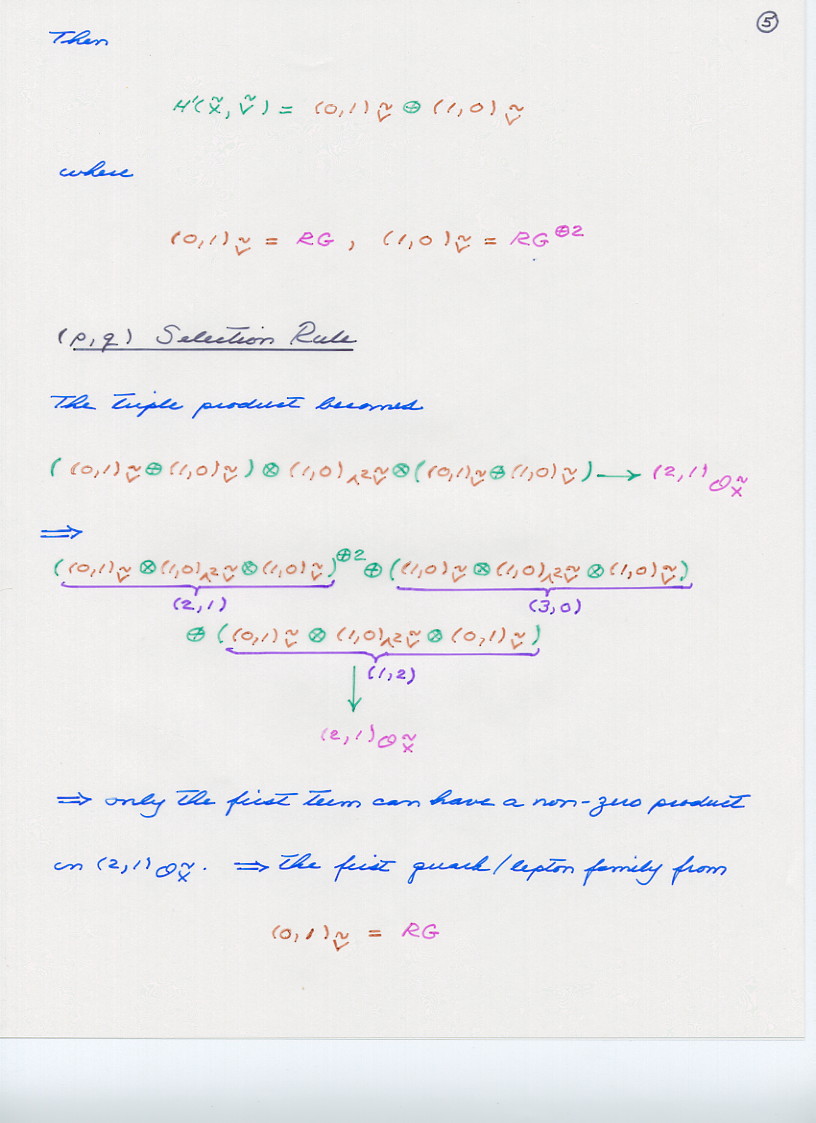 ⑤
Then
H¹(X̃, Ṽ) = (0,1)_Ṽ ⊕ (1,0)_Ṽ
where
(0,1)_Ṽ = RG , (1,0)_Ṽ = RG^⊕2
(p,q) Selection Rule
The triple product becomes
( (0,1)_Ṽ ⊕ (1,0)_Ṽ ) ⊗ (1,0)_∧2Ṽ ⊗ ( (0,1)_Ṽ ⊕ (1,0)_Ṽ ) → (2,1)_O_X̃
⇒
( (0,1)_Ṽ ⊗ (1,0)_∧2Ṽ ⊗ (1,0)_Ṽ )^⊕2 ⊕ ( (1,0)_Ṽ ⊗ (1,0)_∧2Ṽ ⊗ (1,0)_Ṽ )
(2,1) (3,0)
⊕ ( (0,1)_Ṽ ⊗ (1,0)_∧2Ṽ ⊗ (0,1)_Ṽ )
(1,2)
↓
(2,1)_O_X̃
⇒ only the first term can have a non-zero product
in (2,1)_O_X̃. ⇒ the first quark/lepton family from
(0,1)_Ṽ = RG